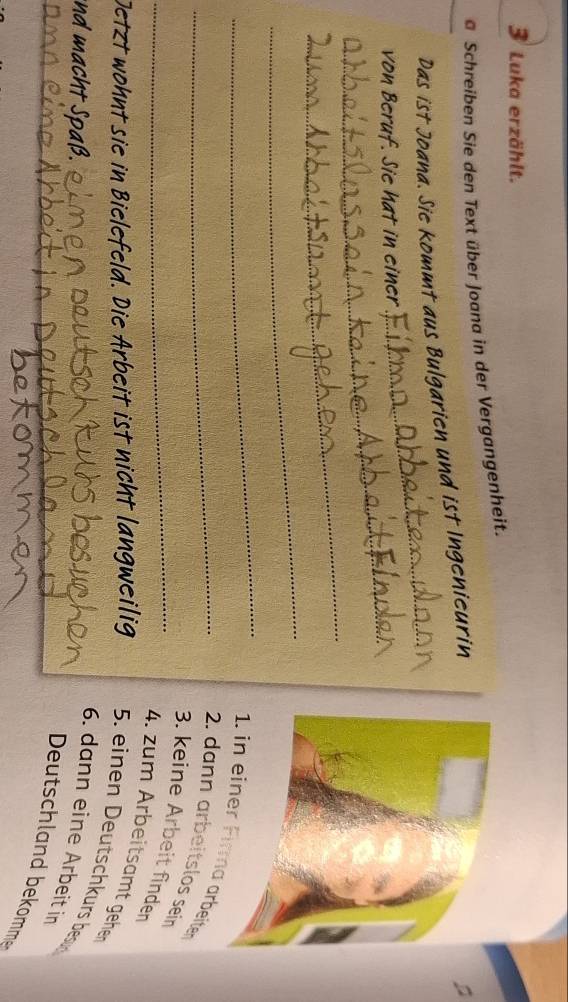 3 Luka erzählt.
a Schreiben Sie den Text über Joana in der Vergangenheit.
Das ist Joana. Sie kommt aus Bulgarien und ist Ingenieurin
von Beruf. Sie hat in einer Firma arbeiten dann
arbeitslos sein keine Arbeit finden
zum Arbeitsamt gehen
Jetzt wohnt sie in Bielefeld. Die Arbeit ist nicht langweilig
nd macht Spaß. einen Deutsch kurs besuchen
ann eine Arbeit in Deutschland
bekommen
1. in einer Firma arbeiten
2. dann arbeitslos sein
3. keine Arbeit finden
4. zum Arbeitsamt gehen
5. einen Deutschkurs besu
6. dann eine Arbeit in
Deutschland bekommen